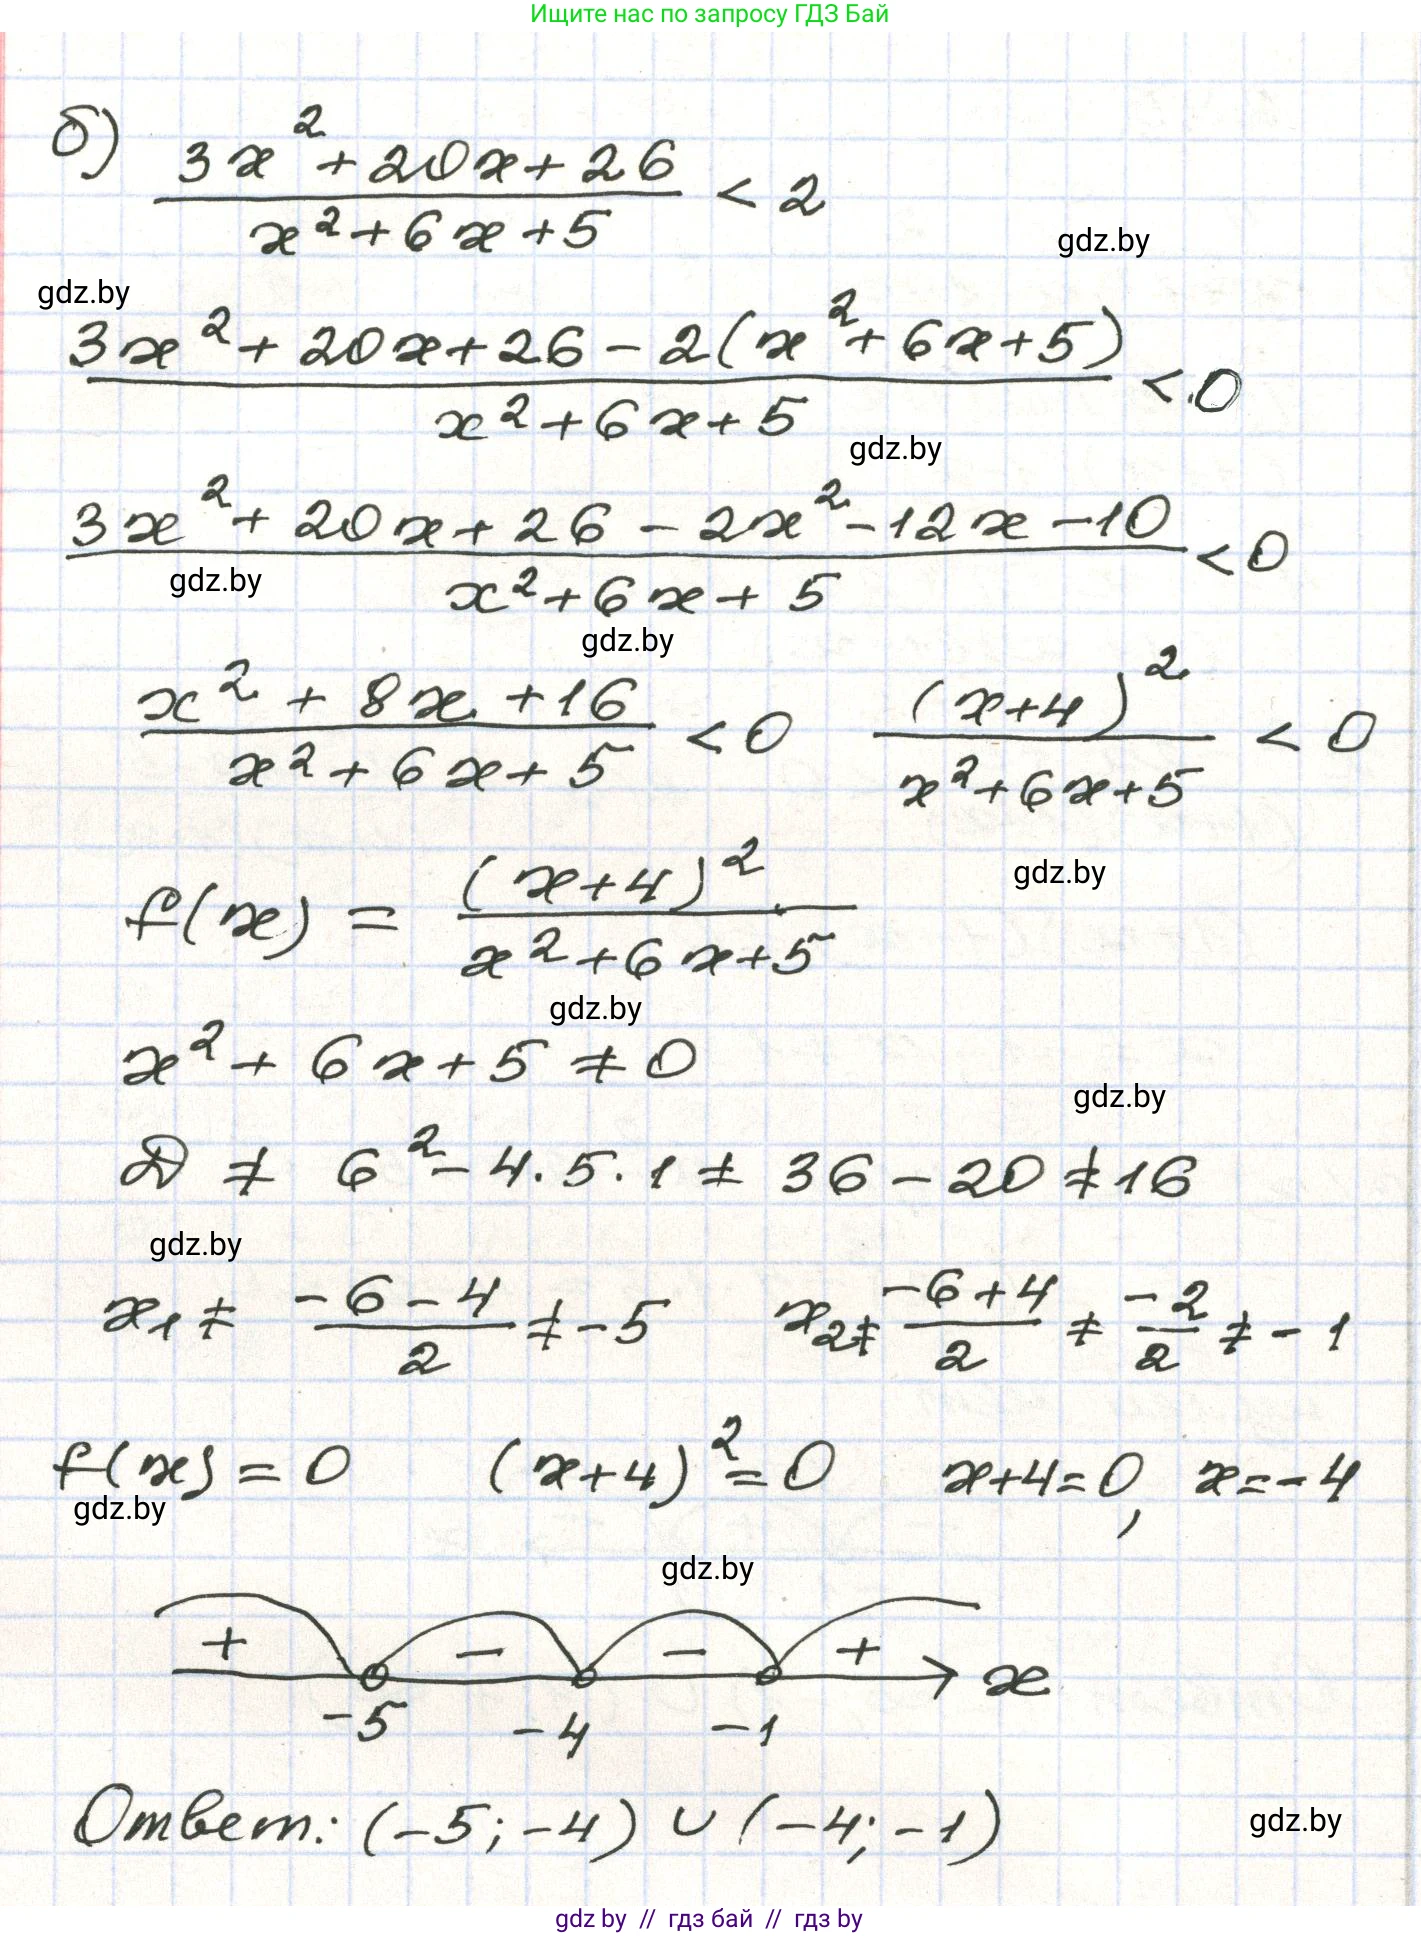 Ищите нас по запросу ГДЗ Бай
б) (3x² + 20x + 26)/(x² + 6x + 5) < 2
gdz.by
gdz.by
(3x² + 20x + 26 - 2(x² + 6x + 5))/(x² + 6x + 5) < 0
gdz.by
(3x² + 20x + 26 - 2x² - 12x - 10)/(x² + 6x + 5) < 0
gdz.by
gdz.by
(x² + 8x + 16)/(x² + 6x + 5) < 0   (x+4)²/(x² + 6x + 5) < 0
gdz.by
f(x) = (x+4)²/(x² + 6x + 5)
gdz.by
x² + 6x + 5 ≠ 0
gdz.by
D ≠ 6² - 4·5·1 ≠ 36 - 20 ≠ 16
gdz.by
x₁ ≠ (-6-4)/2 ≠ -5   x₂ ≠ (-6+4)/2 ≠ -2/2 ≠ -1
f(x) = 0   (x+4)² = 0   x+4=0, x=-4
gdz.by
gdz.by
+ - - + x
-5 -4 -1
Ответ: (-5; -4) ∪ (-4; -1)
gdz.by
gdz by // гдз бай // гдз by